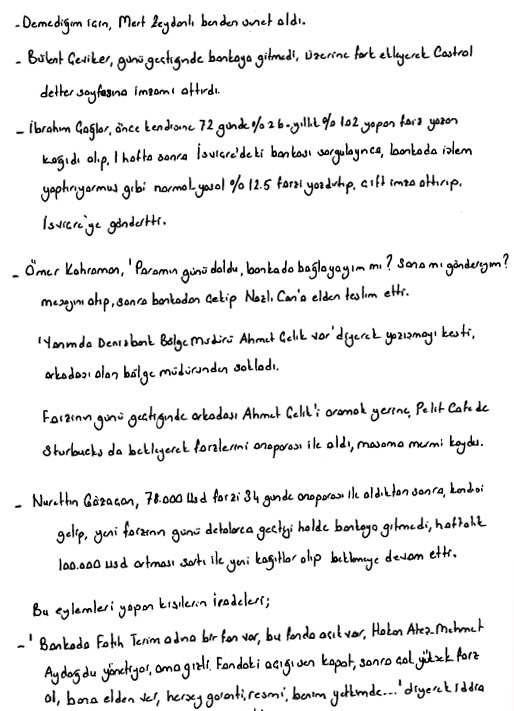 - Demediğim için, Mert Zeydanlı benden senet aldı.
- Bülent Çeviker, günü geçtiğinde bankaya gitmedi, üzerine fark ekleyerek Castrol
defter sayfasına imzamı attırdı.
- İbrahim Çağlar, önce kendisine 72 günde %26-yıllık %102 yapan faiz yazan
kağıdı alıp, 1 hafta sonra İsviçre'deki bankası sorgulayınca, bankada işlem
yaptırıyormuş gibi normal yasal %12.5 faizi yazdırtıp, çift imza attırıp,
İsviçre'ye gönderttı.
- Ömer Kahraman, 'Paramın günü doldu, bankada bağlayayım mı? Sana mı göndereyim?
mesajını atıp, sonra bankadan çekip Nazlı Can'a elden teslim etti.
'Yanımda Denizbank Bölge Müdürü Ahmet Çelik var' diyerek yazışmayı kesti,
arkadaşı olan bölge müdüründen sakladı.
Faizinin günü geçtiğinde arkadaşı Ahmet Çelik'i aramak yerine, Pelit Cafe de
Sturbucks da bekleyerek faizlerini anaparası ile aldı, masama mermi koydu.
- Nurettin Gözaçan, 78.000 Usd faizi 34 günde anaparası ile aldıktan sonra, kendisi
gelip, yeni faizinin günü defalarca geçtiği halde bankaya gitmedi, haftalık
100.000 usd artması şartı ile yeni kağıtlar alıp beklemeye devam etti.
Bu eylemleri yapan kişilerin ifadeleri;
- ' Bankada Fatih Terim adına bir fon var, bu fonda açık var, Hakan Ateş-Mehmet
Aydoğdu yönetiyor, ama gizli. Fondaki açığı sen kapat, sonra çok yüksek faiz
al, bana elden ver, herşey garanti, resmi, benim yetkimde...' diyerek iddia